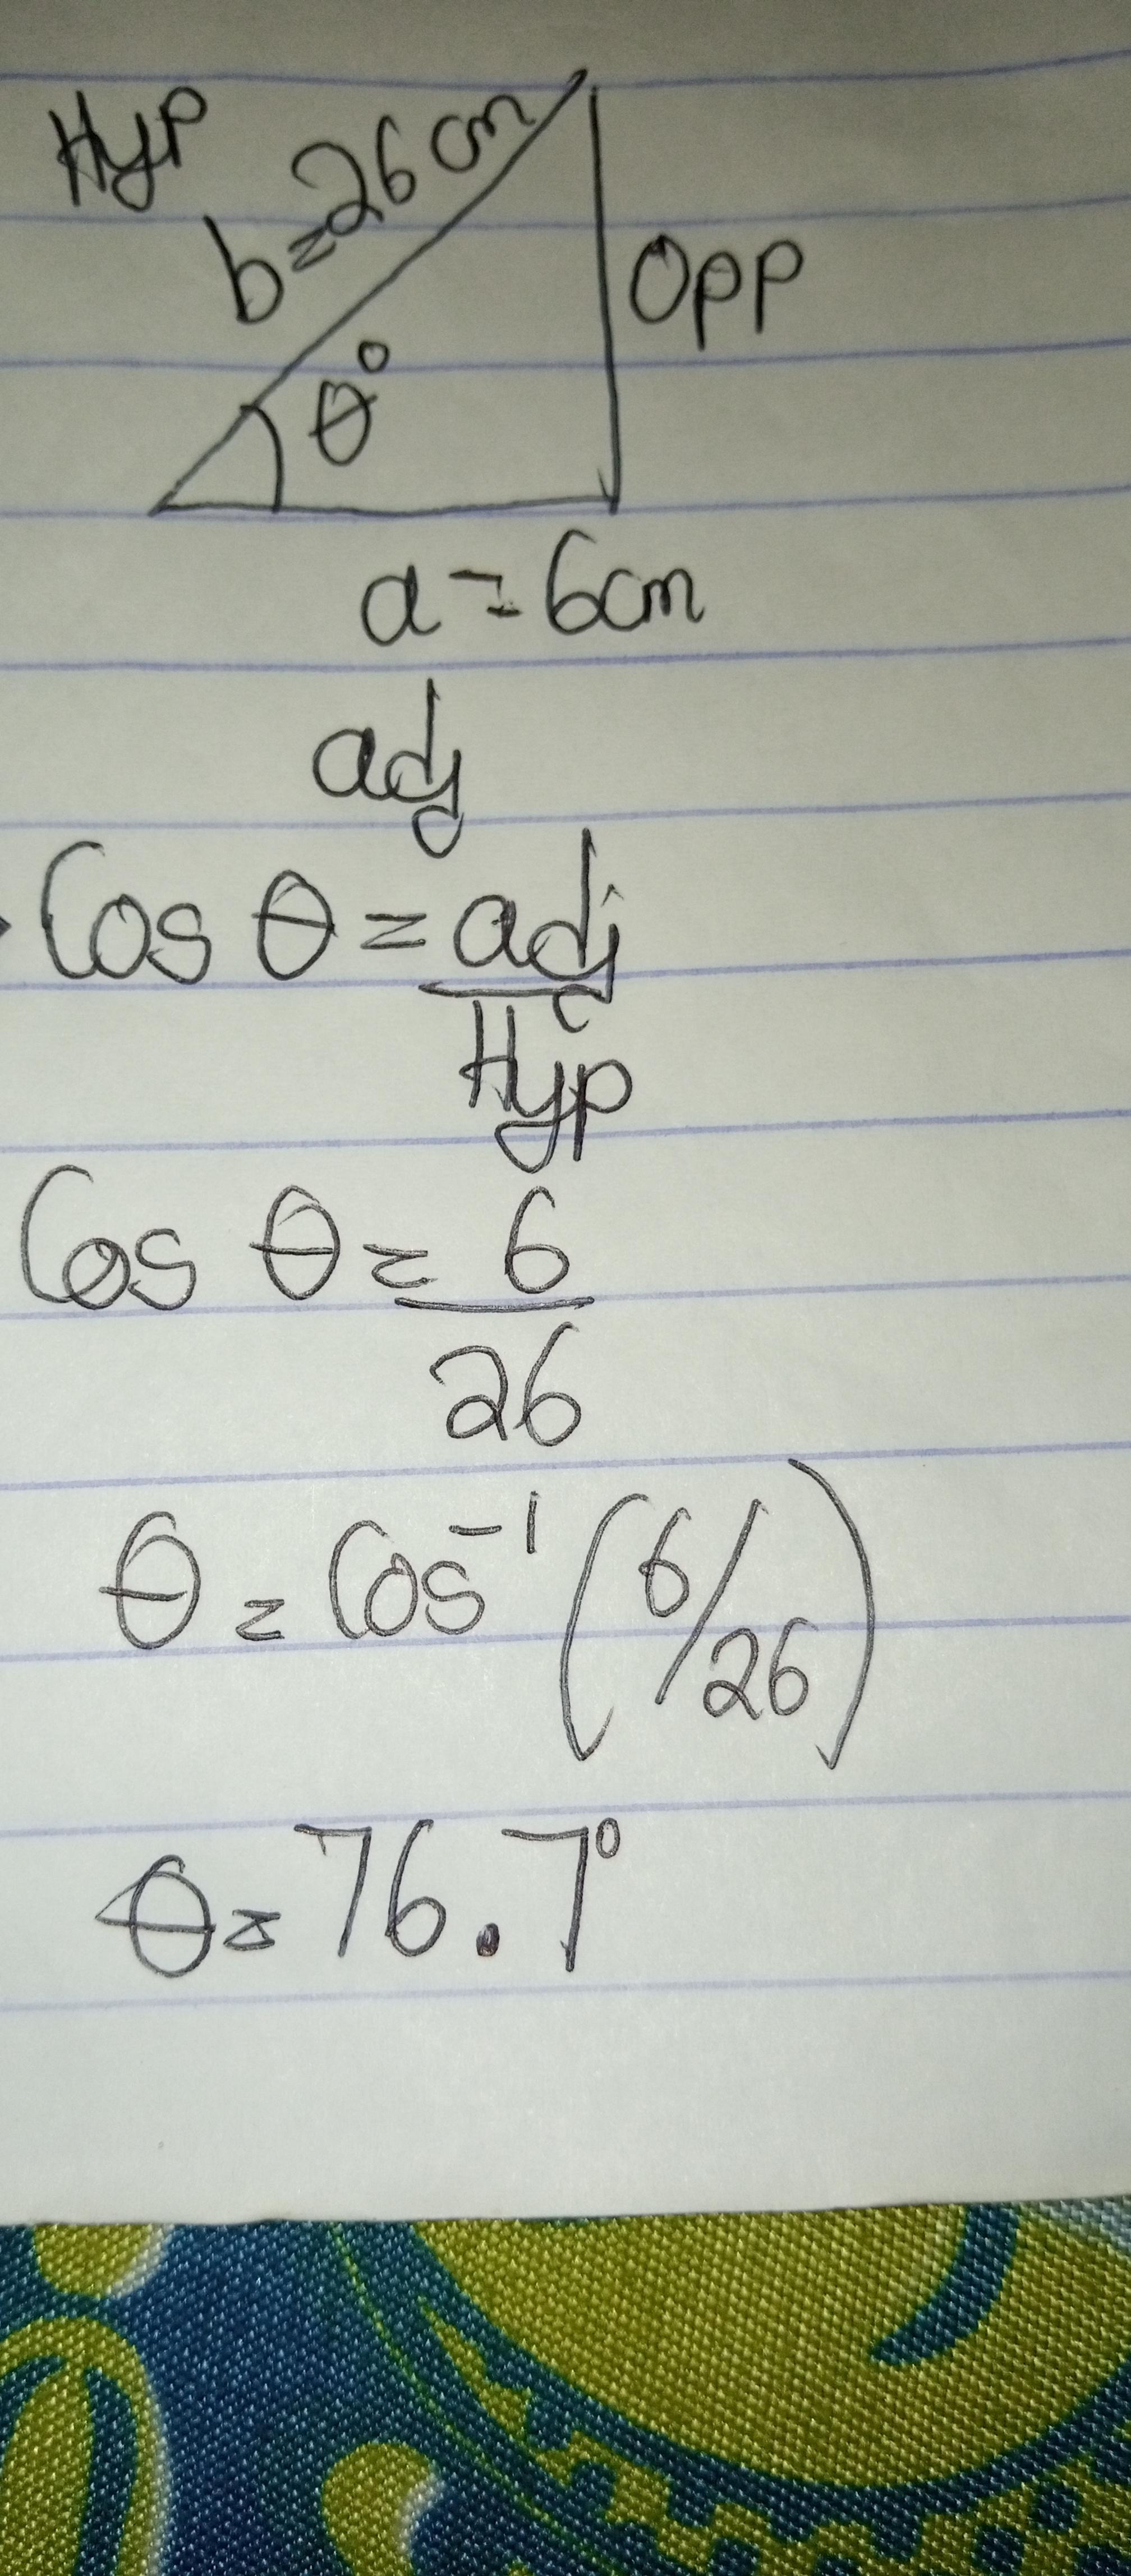 Hyp
b = 26 cm
Opp
θ°
a = 6cm
adj
Cos θ = adj
Hyp
Cos θ = 6
26
θ = Cos⁻¹ (6/26)
θ = 76.7°